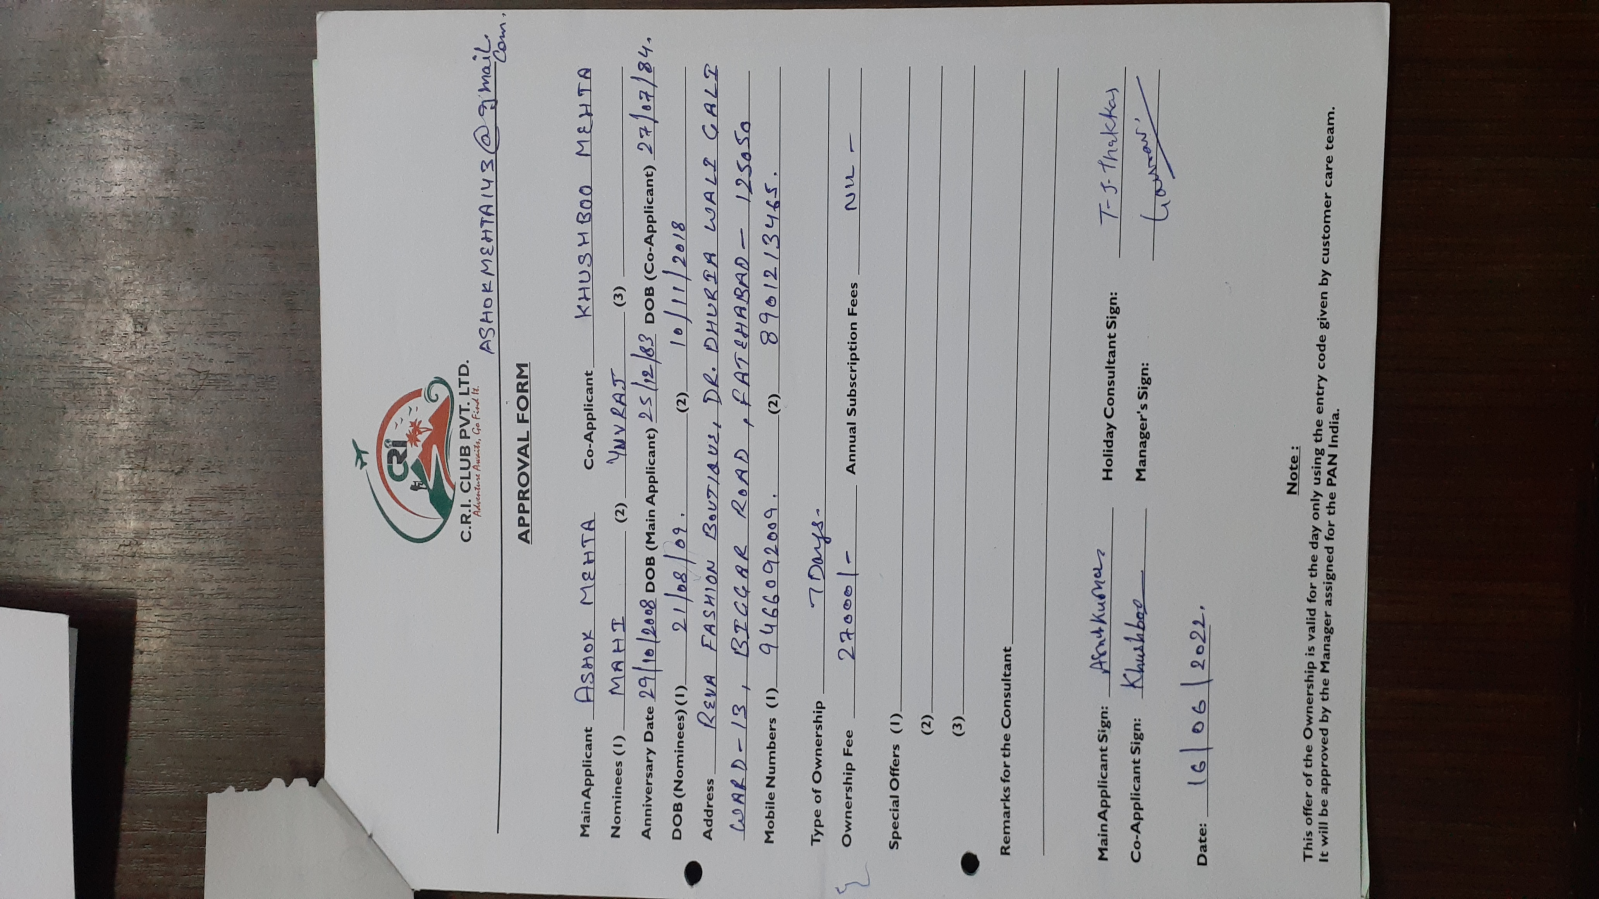 CRI
C.R.I. CLUB PVT. LTD.
Adventure Awaits, Go Find It.
ASHOKMEHTA143@gmail.
com.
APPROVAL FORM
Main Applicant ASHOK MEHTA Co-Applicant KHUSHBOO MEHTA
Nominees (1) MAHI (2) YUVRAJ (3)
Anniversary Date 29/10/2008 DOB (Main Applicant) 25/12/83 DOB (Co-Applicant) 27/07/84.
DOB (Nominees) (1) 21/08/09. (2) 10/11/2018
Address RENA FASHION BOUTIQUE, DR. DHURIA WALI GALI
WARD-13, BIGGAR ROAD, FATEHABAD - 125050
Mobile Numbers (1) 9466092009. (2) 8901213465.
Type of Ownership 7 Days.
Ownership Fee 27000/- Annual Subscription Fees NIL -
Special Offers (1)
(2)
(3)
Remarks for the Consultant
Main Applicant Sign: Holiday Consultant Sign: T-J-Thakkar
Co-Applicant Sign: Khushboo Manager's Sign:
Date: 16/06/2022.
Note :
This offer of the Ownership is valid for the day only using the entry code given by customer care team.
It will be approved by the Manager assigned for the PAN India.